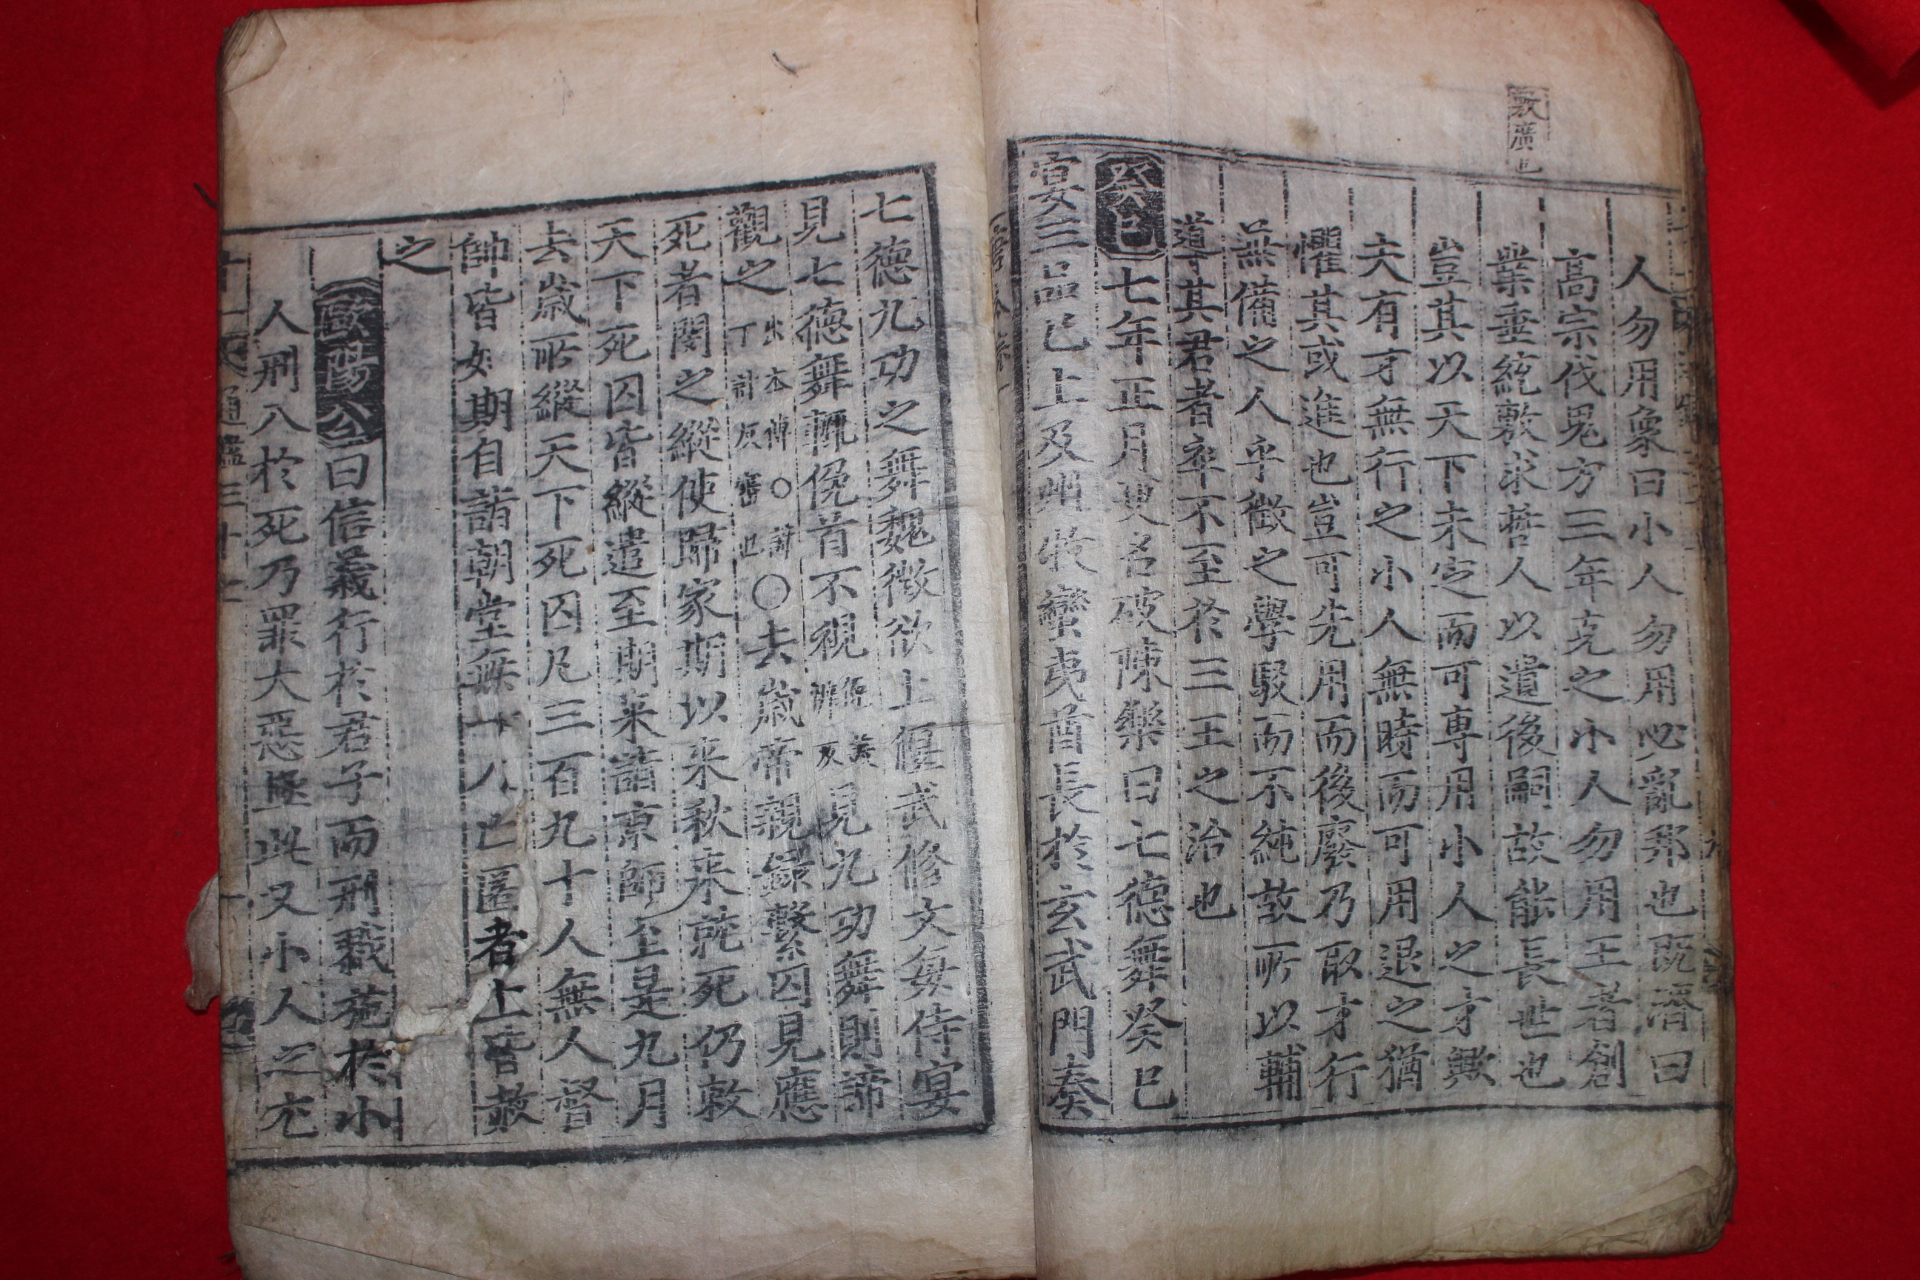 敷廣也
人勿用象曰小人勿用必亂邦也旣濟曰
高宗伐鬼方三年克之小人勿用王者創
業垂統敷求哲人以遺後嗣故能長世也
豈其以天下未定而可専用小人之才歟
夫有才無行之小人無時而可用退之猶
懼其或進也豈可先用而後廢乃取才行
無備之人乎徵之學駁而不純故所以輔
導其君者卒不至於三王之治也
癸巳七年正月更名破陳樂曰七德舞癸巳
宴三品已上及州牧蠻夷酋長於玄武門奏
七德九功之舞魏徵欲上偃武修文每侍宴
見七德舞輒俛首不視見九功舞則諦
觀之出本傳○諦丁計反審也○去歲帝親錄繫囚見應
死者閔之縱使歸家期以来秋来就死仍敕
天下死囚皆縱遣至期来詣京師至是九月
去歲所縱天下死囚凡三百九十人無人督
帥皆如期自詣朝堂無一人亡匿者上皆赦
之
歐陽公曰信義行於君子而刑戮施於小
人刑入於死乃罪大惡極此又小人之尤